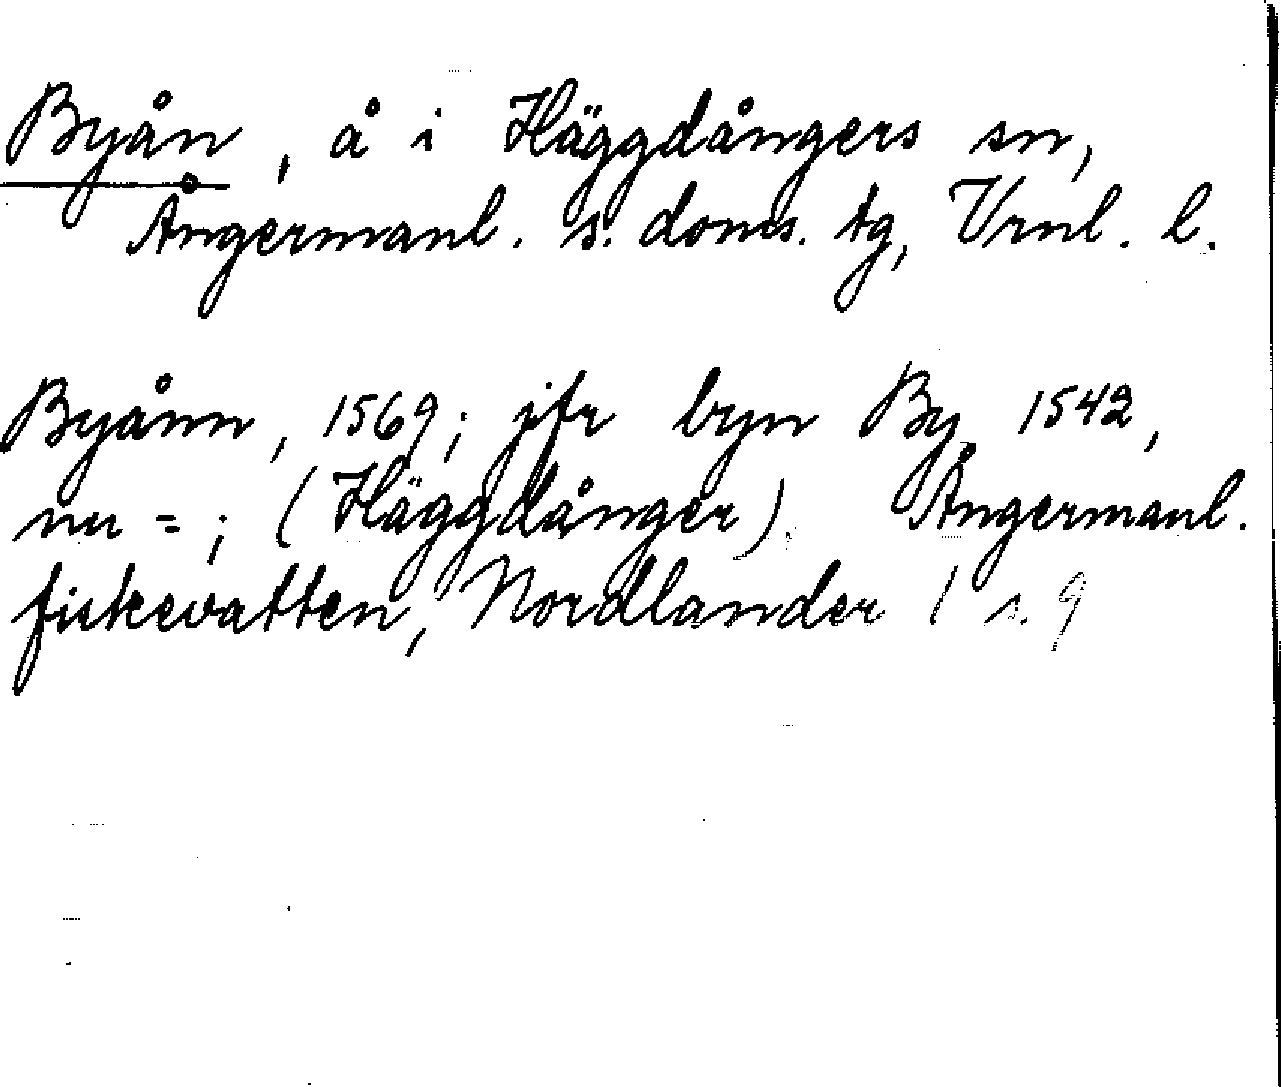 Byån, å i Häggdångers sn,
Ångermanl. s. doms. tg, Vrnl. l.
Byånn, 1569; jfr byn By, 1542,
nu = ; (Häggdånger). Ångermanl.
fiskevatten, Nordlander 1 s. 9